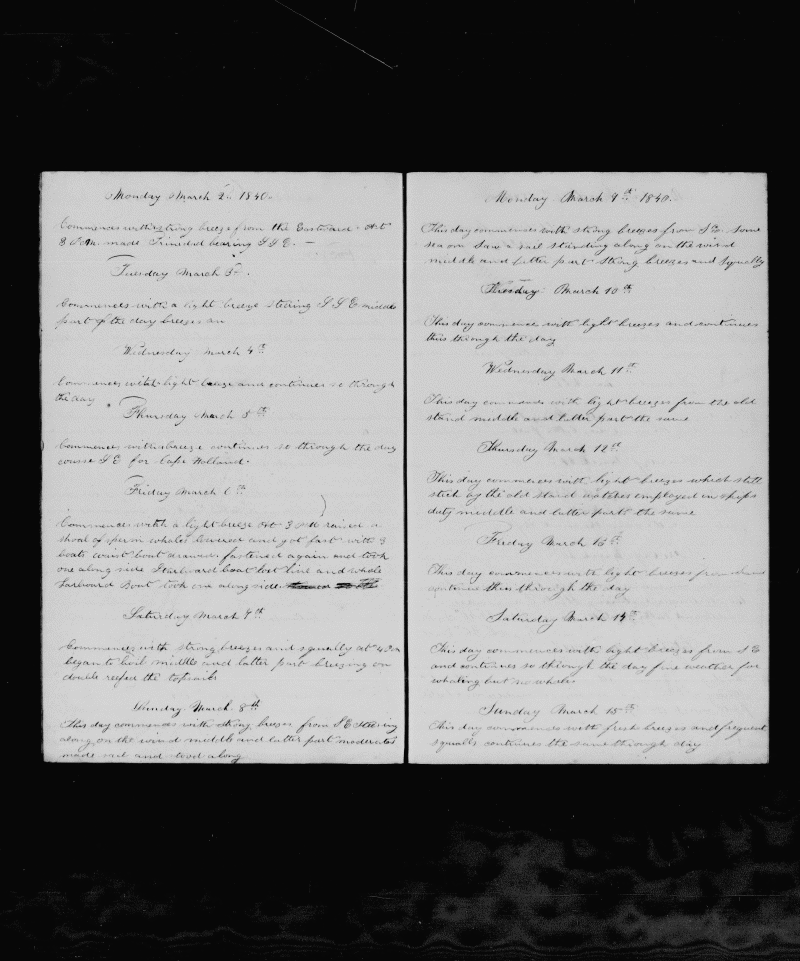 Monday March 2d 1840.
Commences with strong breeze from the Eastward At
8 A.M. made Trinidad bearing SSE. —
Tuesday March 3d.
Commences with a light breeze stering SSE middle
part of the day breezes an
Wednesday March 4th
Commences with light breeze and continues so through
the day
Thursday March 5th
Commences with breeze continues so through the day
course SE for Cape Holland.
Friday March 6th
Commences with a light breeze At 3 raised a
shoal of sperm whales lowered and got fast with 3
boats waist boat drawed. fastened again and took
one along side Starboard boat lost line and whale
Larboard Boat took one along side
Saturday March 7th
Commences with strong breezes and squally at 4
began to boil middle and latter part breezing on
double reefed the topsails
Sunday March 8th
This day commences with strong breezes from SE Stering
along on the wind middle and latter part moderates
made sail and stood along
Monday March 9th 1840.
This day commences with strong breezes from SE. some
sea on Saw a sail standing along on the wind
middle and latter part strong breezes and squally
Tuesday March 10th
This day commences with light breezes and continues
thus through the day
Wednesday March 11th
This day commences with light breezes from the old
stand middle and latter part the same
Thursday March 12th
This day commences with light breezes which still
stick by the old stand watches employed in ships
duty middle and latter part the same
Friday March 13th
This day commences with light breezes from
continue thus through the day
Saturday March 14th
This day commences with light breezes from SE
and continues so through the day fine weather for
whaling but no whales
Sunday March 15th
This day commences with fresh breezes and frequent
squalls continues the same through day